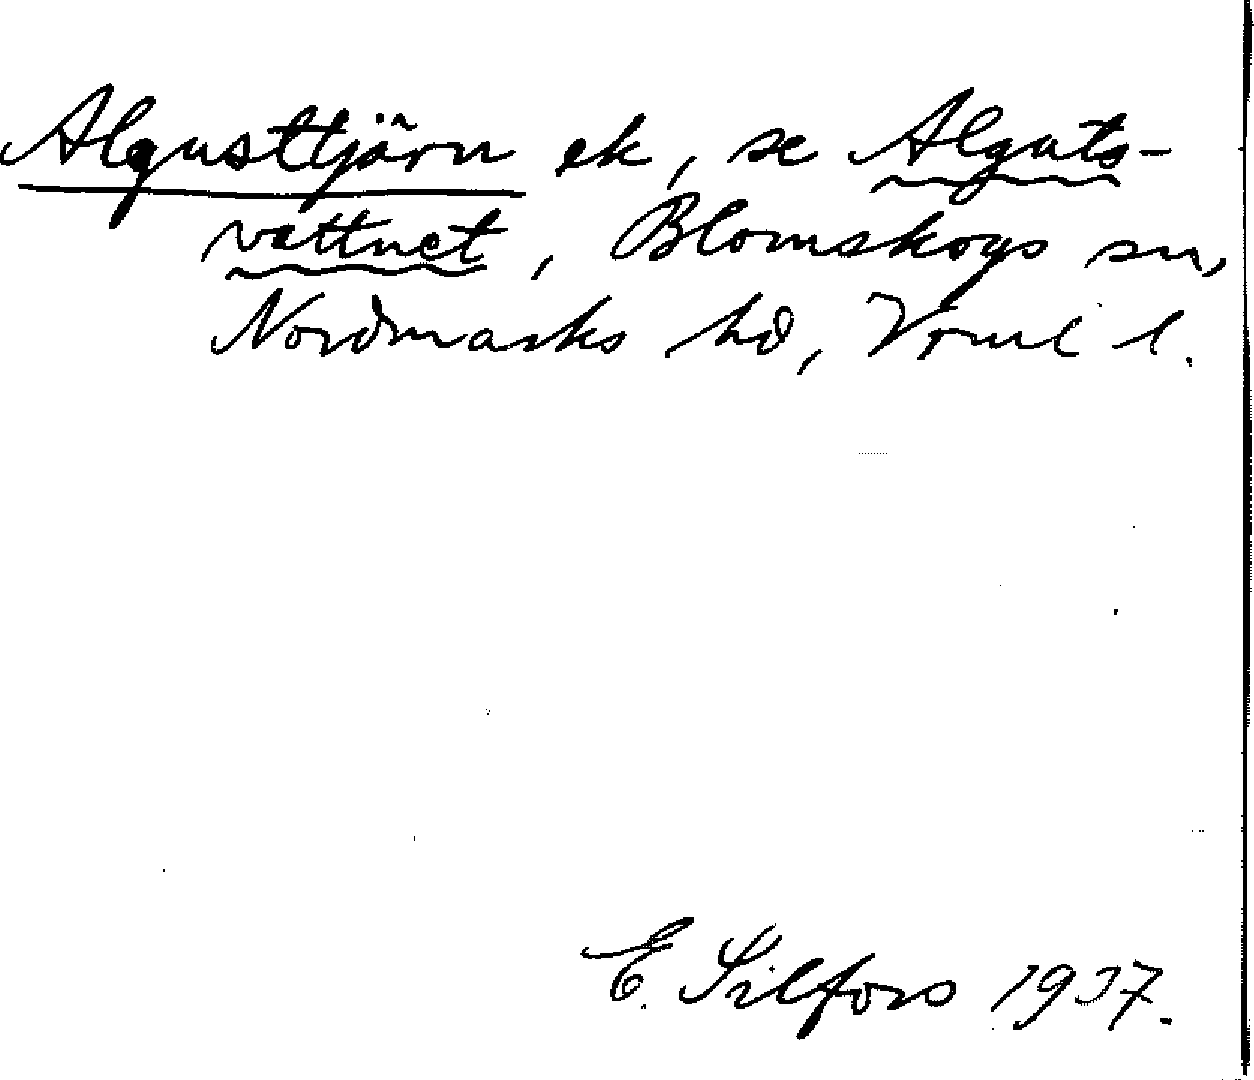 Algusttjärn ek, se Alguts-
vattnet, Blomskogs sn,
Nordmarks hd, Vrml l.
E. Silfors 1937.